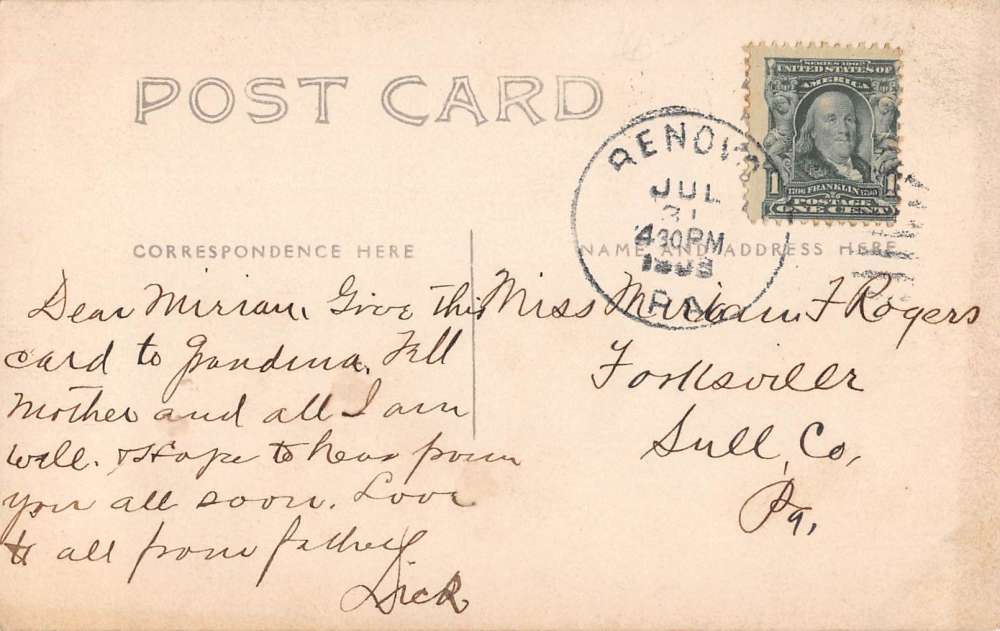 POST CARD
SERIES 1902
UNITED STATES OF
AMERICA
1 1706 FRANKLIN 1790 1
POSTAGE
ONE CENT
RENOVO
JUL
31
4 30 PM
PA.
CORRESPONDENCE HERE
NAME AND ADDRESS HERE
Dear Miriam, Give this
card to Grandma. Tell
Mother and all I am
well. Hope to hear from
you all soon. Love
to all from father
Dick
Miss Miriam F Rogers
Forksville
Sull, Co,
Pa,